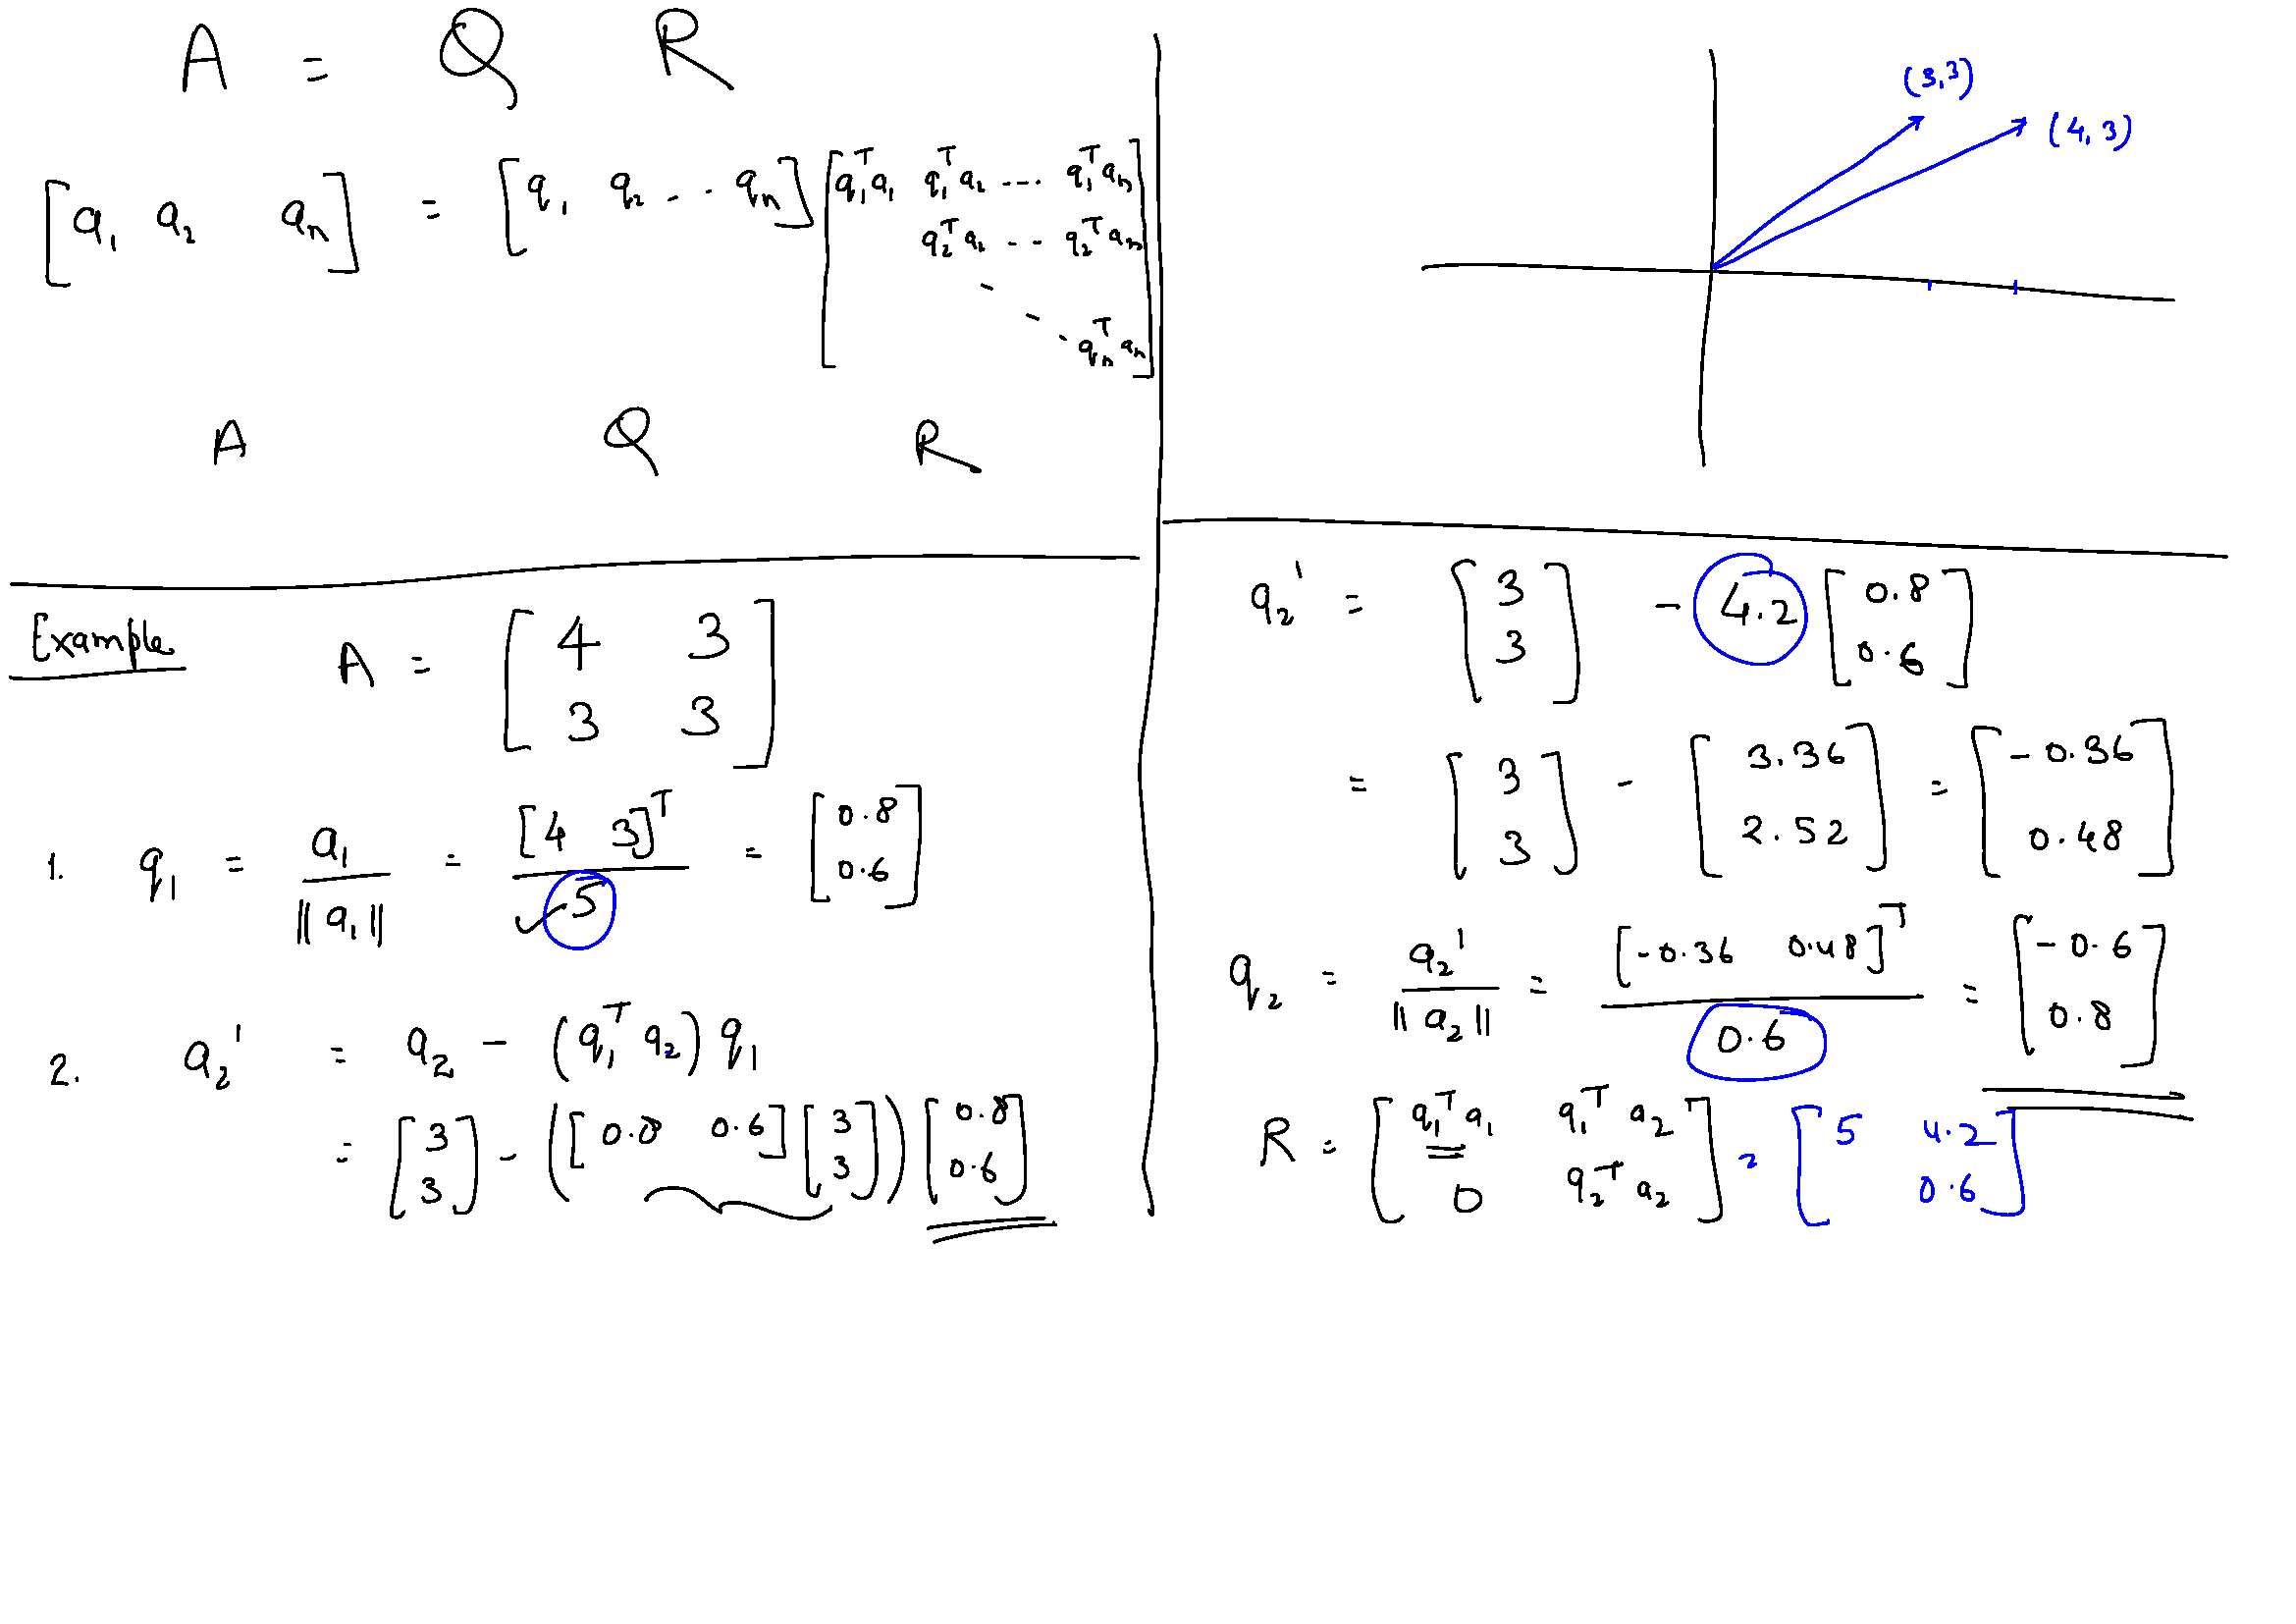 A = Q R
[a₁ a₂ aₙ] = [q₁ q₂ .. qₙ] [q₁ᵀa₁ q₁ᵀa₂ .... q₁ᵀaₙ
q₂ᵀa₂ .. q₂ᵀaₙ
qₙᵀaₙ]
A Q R
Example
A = [4 3
3 3]
1. q₁ = a₁ / ||a₁|| = [4 3]ᵀ / 5 = [0.8
0.6]
2. a₂' = a₂ - (q₁ᵀ a₂) q₁
= [3
3] - ([0.8 0.6] [3
3]) [0.8
0.6]
(3,3)
(4,3)
a₂' = [3
3] - 4.2 [0.8
0.6]
= [3
3] - [3.36
2.52] = [-0.36
0.48]
q₂ = a₂' / ||a₂|| = [-0.36 0.48]ᵀ / 0.6 = [-0.6
0.8]
R = [q₁ᵀa₁ q₁ᵀa₂
0 q₂ᵀa₂] = [5 4.2
0.6]